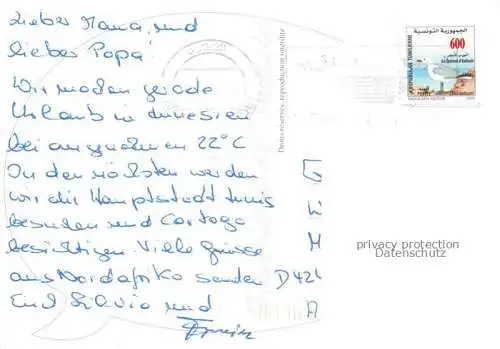 Lieber Mama, und
lieber Papa!
Wir machen gerade
Urlaub in Tunesien
bei angenehmen 22°C
In den nächsten werden
wir die Hauptstadt Tunis
besuchen und Cartago
besichtigen. Viele Grüsse
aus Nordafrika senden
Euch Silvia und
D 421
الجمهورية التونسية
600
REPUBLIQUE TUNISIENNE
Droits réservés, reproduction interdite
privacy protection
Datenschutz